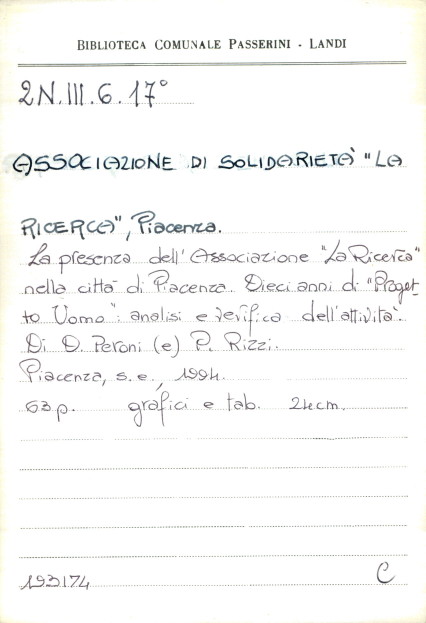 BIBLIOTECA COMUNALE PASSERINI - LANDI
2N.III.6.17°
ASSOCIAZIONE DI SOLIDARIETA' "LA
RICERCA", Piacenza.
La presenza dell'Associazione "La Ricerca"
nella città di Piacenza. Dieci anni di "Proget-
to Uomo": analisi e verifica dell'attività.
Di D. Peroni (e) P. Rizzi.
Piacenza, s.e., 1994.
63p. grafici e tab. 24cm.
193174 C